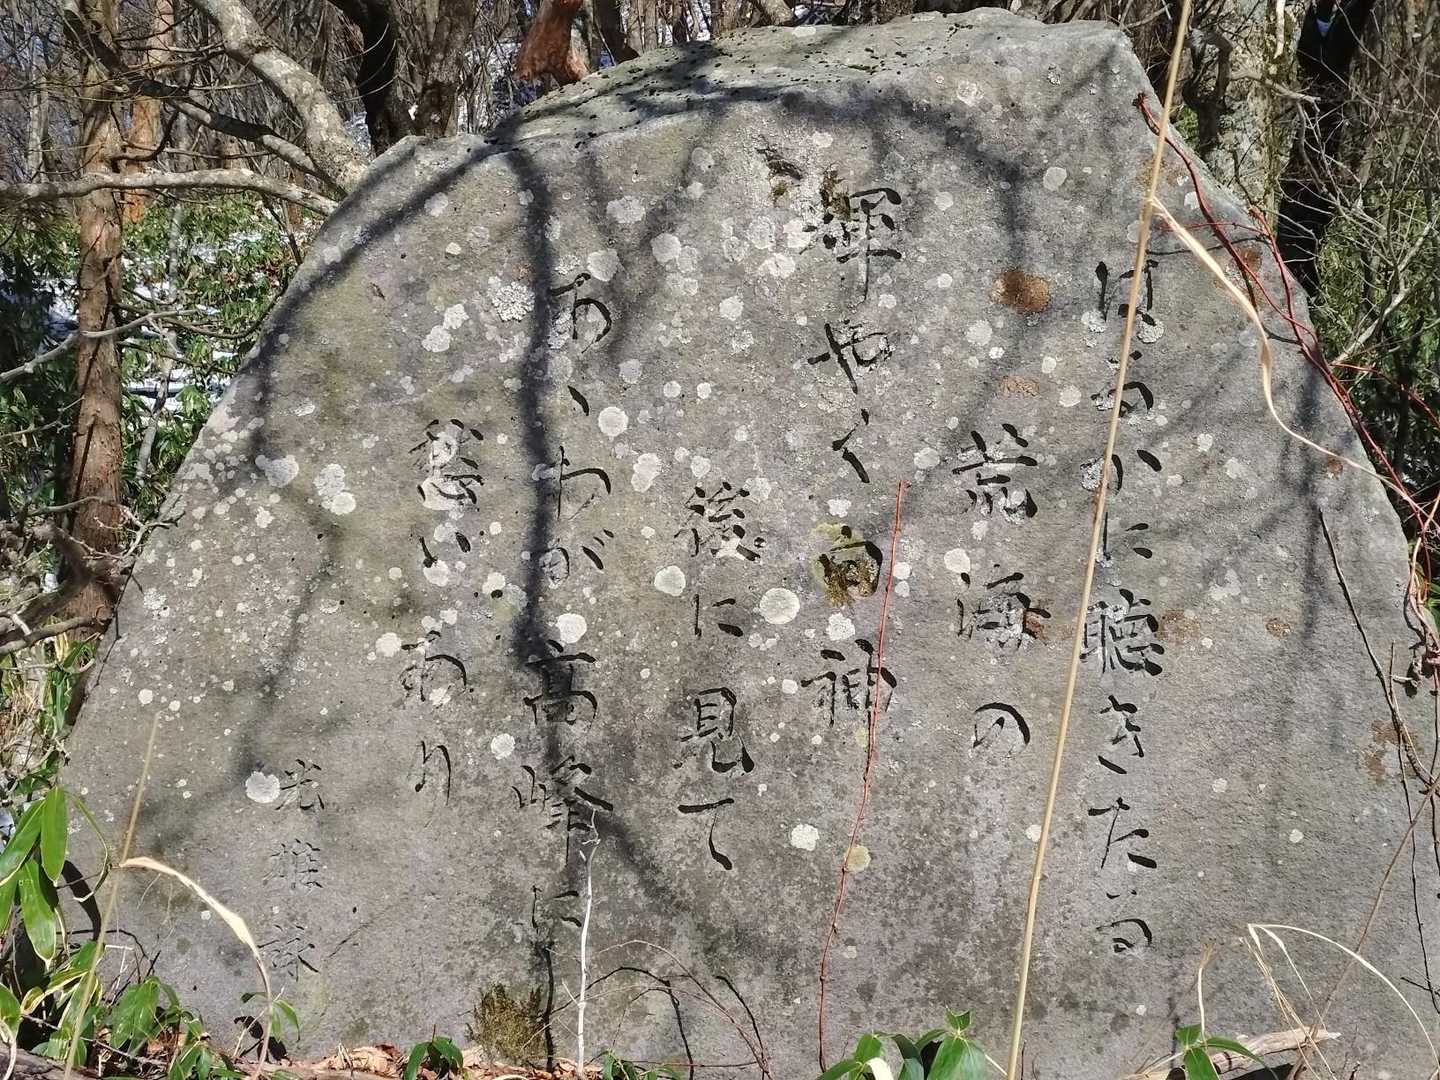 はるかに聴きたる
荒海の
輝やく白神
後に見て
あゝわが高峰に
憩いあり
光雄詠